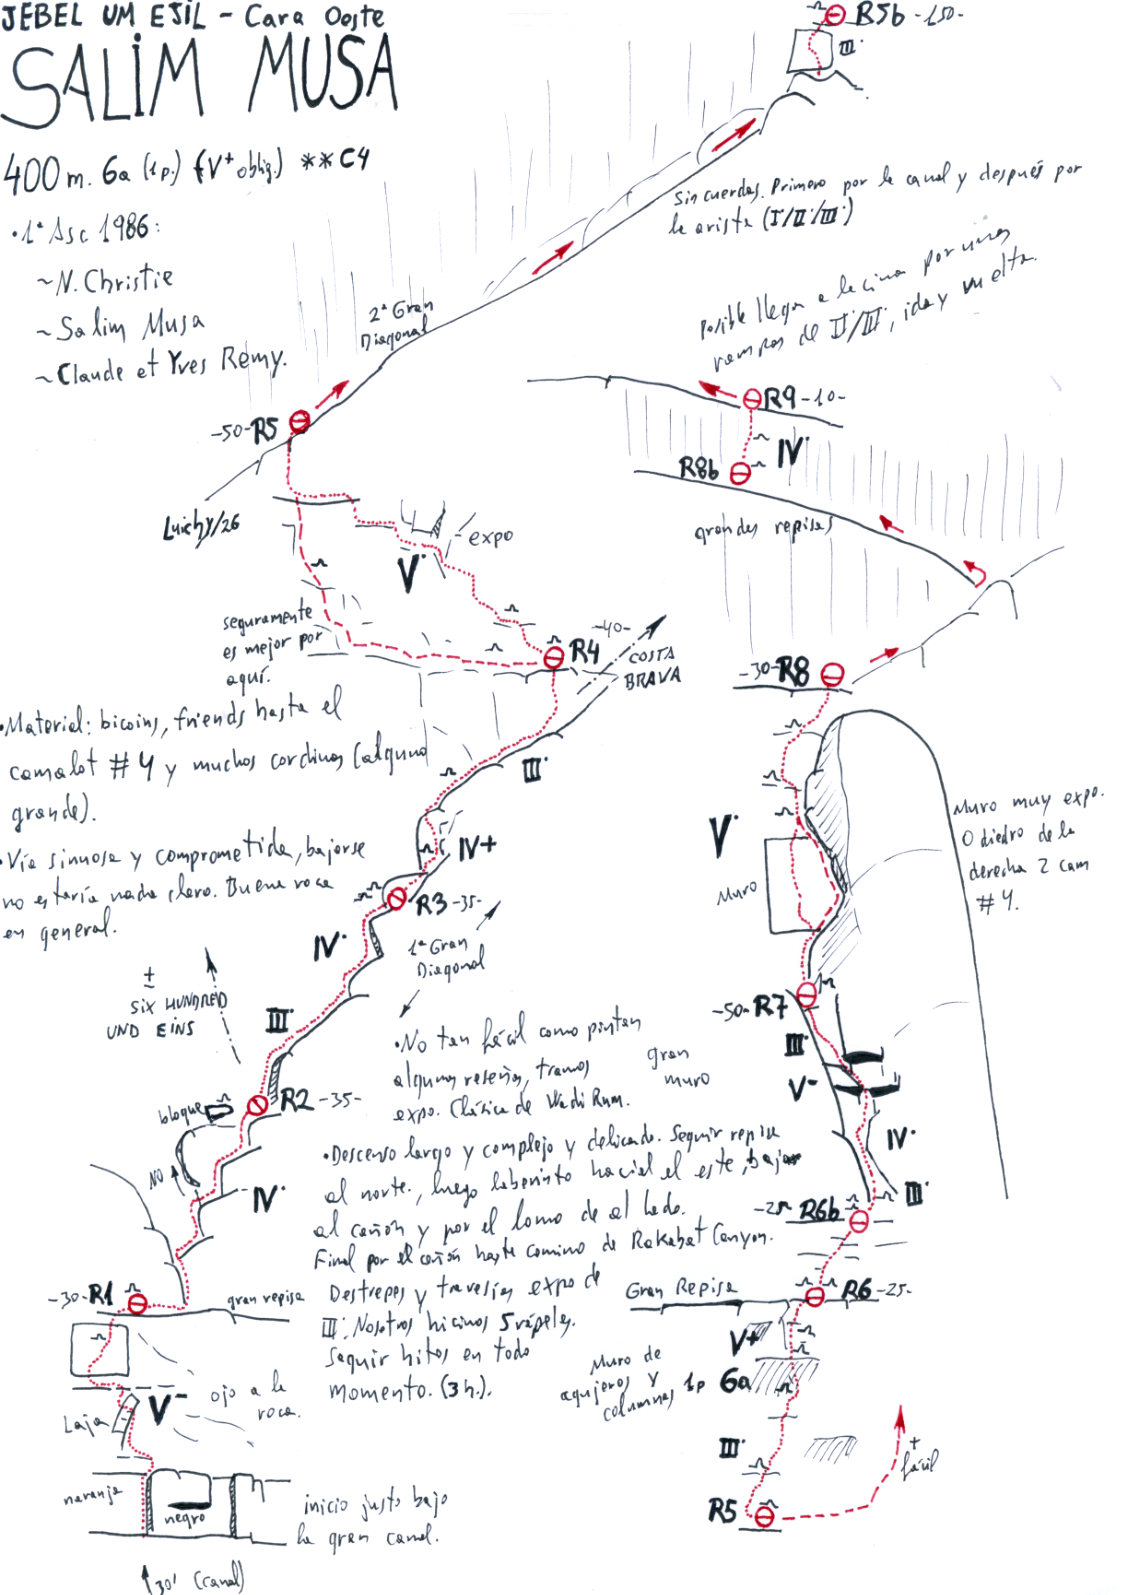 JEBEL UM EJIL - Cara Oeste
SALIM MUSA
400 m. 6a (1p.) (V+ oblig.) **C4
• 1ª Asc 1986:
~ N. Christie
~ Salim Musa
~ Claude et Yves Remy.
R5b -150-
III·
Sin cuerdas. Primero por la canal y después por
la arista (I·/II·/III·)
2ª Gran
Diagonal
Posible llegar a la cima por unas
rampas de II·/III·, ida y vuelta.
R9 -10-
IV·
R8b
grandes repisas
-50- R5
Luichy/26
expo
V·
seguramente
es mejor por
aquí.
R4 -40-
COSTA
BRAVA
-30- R8
• Material: bicoins, friends hasta el
camalot #4 y muchos cordinos (alguno
grande).
III·
IV+
• Vía sinuosa y comprometida, bajarse
no estaría nada claro. Buena roca
en general.
R3 -35-
IV·
1ª Gran
Diagonal
V·
Muro
Muro muy expo.
O diedro de la
derecha 2 cam
#4.
±
SIX HUNDRED
UND EINS
III·
-50- R7
• No tan fácil como pintan
algunas reseñas, tramos
expo. Clásica de Wadi Rum.
gran
muro
III·
V-
IV·
III·
bloque
R2 -35-
NO
IV·
• Descenso largo y complejo y delicado. Seguir repisa
al norte, luego laberinto hacia el el este, bajar
al cañón y por el lomo de al lado.
Final por el cañón hasta camino de Rakabat Canyon.
Destrepes y travesías expo de
III·. Nosotros hicimos 5 rápeles.
Seguir hitos en todo
momento. (3h.).
-25- R6b
Gran Repisa
R6 -25-
-30- R1
gran repisa
V+
Muro de
agujeros y
columnas
1p 6a
V-
Laja
ojo a la
roca.
III·
+
fácil
R5
naranja
negro
inicio justo bajo
la gran canal.
30' (canal)